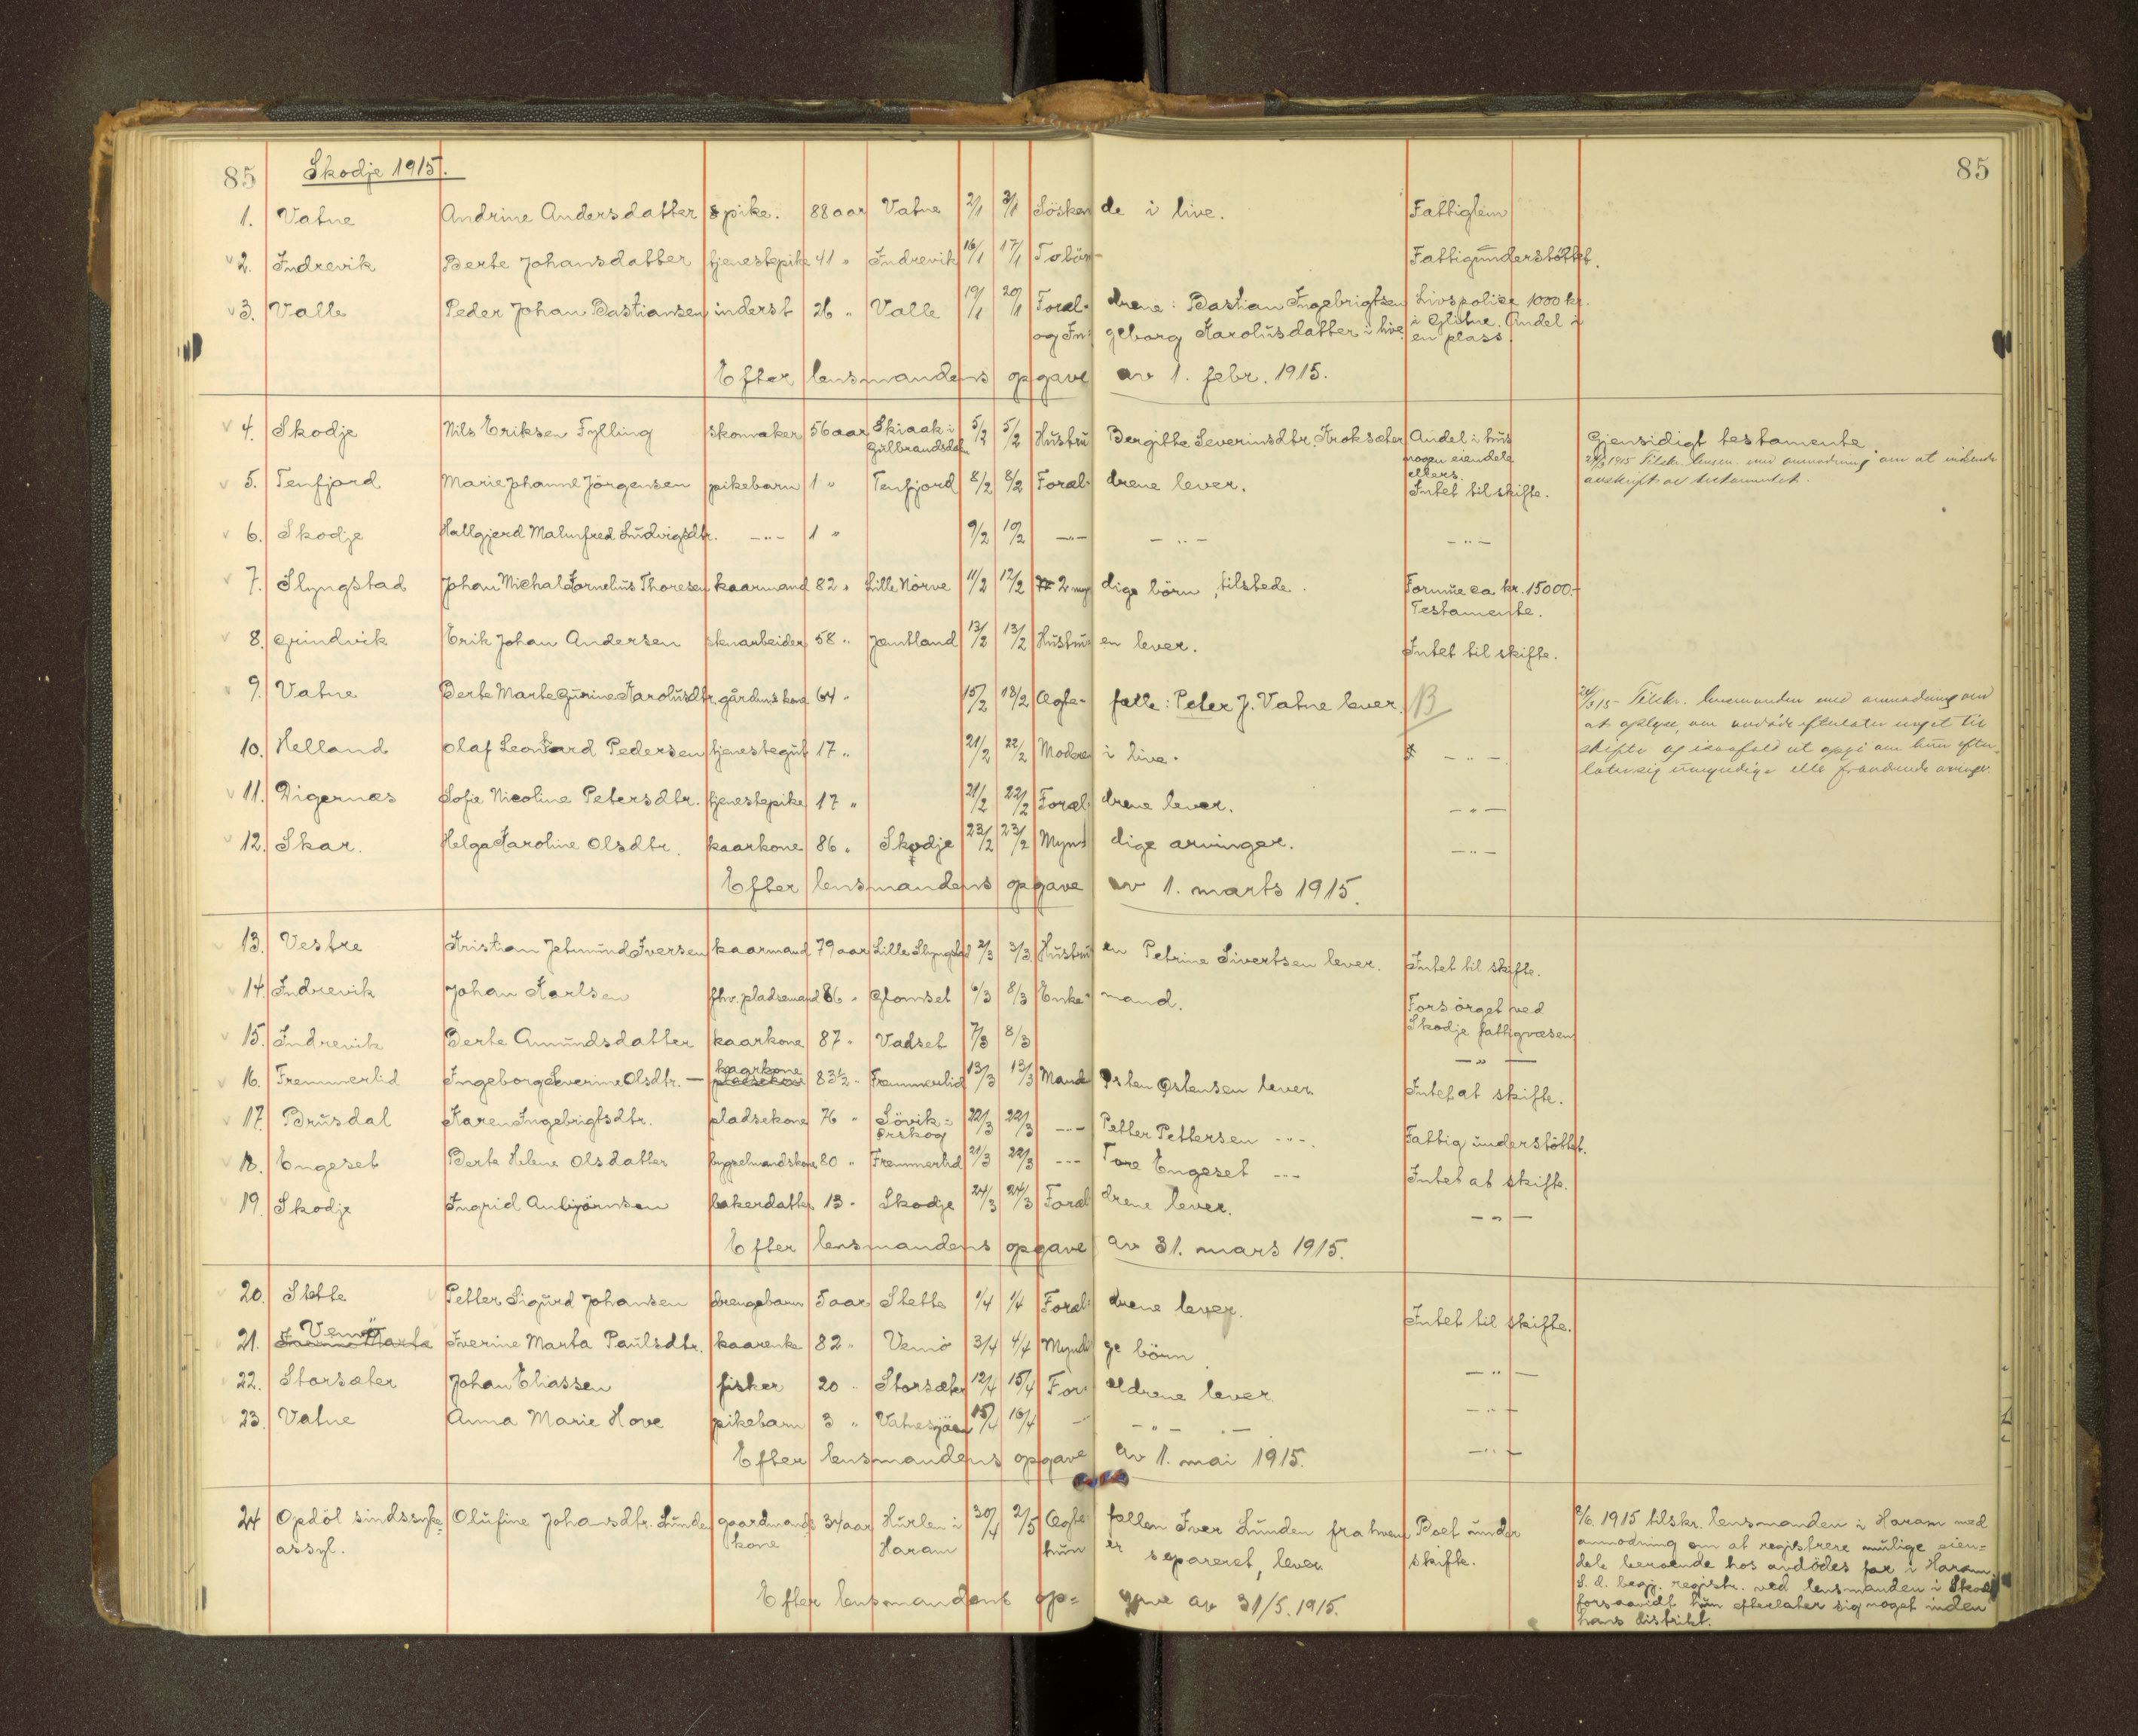 85 Skodje 1915. 85
1. Vatne Andrine Andersdatter pike. 88 aar Vatne 2/1 3/1 Sösken de i live. Fattiglem
2. Indrevik Berte Johansdatter tjenestepike 41 " Indrevik 16/1 17/1 Fattigunderstöttet.
3. Valle Peder Johan Bastiansen inderst 26 " Valle 19/1 20/1 Foræl- drene: Bastian Ingebrigtsen Livspolise 1000 kr.
og In- geborg Karolusdatter i live i Glitne. Andel i
en plass.
Efter lensmandens opgave av 1. febr. 1915.
4. Skodje Nils Eriksen Fylling skomaker 56 aar Skiaak i 5/2 5/2 Hustru Bergitte Severinsdtr. Kroksæter Andel i hus Gjensidigt testamente
Gulbrandsdalen nogen eiendele 1915 Tilskr. lensm. med anmodning om at indsende
ellers. avskrift av testamentet.
5. Tenfjord Marie Johanne Jörgensen pikebarn 1 " Tenfjord 8/2 8/2 Foræl- drene lever. Intet til skifte.
6. Skodje Hallgjerd Malmfred Ludvigsdtr. -"- 1 " 9/2 10/2 -"- -"- -"-
7. Slyngstad Johan Michal Kornelius Thoresen kaarmand 82 " Lille Nörve 11/2 12/2 2 myn dige börn, tilstede. Formue ca kr. 15000.-
Testamente.
8. Grindvik Erik Johan Andersen skoarbeider 58 " Jemtland 13/2 13/2 Hustru- en lever. Intet til skifte.
9. Vatne Berte Marte Gurine Karolusdtr. gårdmskone 64 " 15/2 18/2 Ægte- fælle: Peter J. Vatne lever. B 24/3 15 Tilskr. lensmanden med anmodning om
at oplyse, om avdöde efterlater noget til
10. Helland Olaf Leonhard Pedersen tjenestegut 17 " 21/2 22/2 Moderen i live. -"- skifte og isaafald at opgi om hun efter-
later sig umyndige eller fraværende arvinger.
11. Digernæs Sofie Nicoline Petersdtr. tjenestepike 17 " 21/2 22/2 Foræl- drene lever. -"-
12. Skar. Helga Karoline Olsdtr. kaarkone 86 " Skodje 23/2 23/2 Myn- dige arvinger. -"-
Efter lensmandens opgave av 1. marts 1915.
13. Vestre Kristian Jetmund Iversen kaarmand 79 aar Lille Slyngstad 2/3 3/3 Hustru en Petrine Sivertsen lever. Intet til skifte.
14. Indrevik Johan Karlsen fhv. pladsemand 86 " Glomset 6/3 8/3 Enke- mand. Forsörget ved
Skodje fattigvæsen
15. Indrevik Berte Amundsdatter kaarkone 87 " Vadset 7/3 8/3 -"-
16. Fremmerlid Ingeborg Severine Olsdtr. - kaarkone 83½ " Fremmerlid 13/3 13/3 Mand Østen Østensen lever. Intet at skifte.
17. Brusdal Karen Ingebrigtsdtr. pladsekone 76 " Sövik i 22/3 22/3 -"- Petter Pettersen -"-. Fattig understöttet.
Ørskog
18. Engeset Berte Helene Olsdatter bygselmandskone 80 " Fremmerlid 21/3 22/3 -"- Tore Engeset -"- Intet at skifte.
19. Skodje Ingrid Anbjörnsen bakerdatter 13 " Skodje 24/3 24/3 Foræl drene lever. -"-
Efter lensmandens opgave av 31. mars 1915.
20. Stette Petter Sigurd Johansen drengebarn 5 aar Stette 1/4 1/4 Foræl- drene lever. Intet til skifte.
21. Vemö Iverine Marta Paulsdtr. kaarenke 82 " Vemö 3/4 4/4 Myndi ge börn -"-
22. Storsæter Johan Eliassen fisker 20 " Storsæter 12/4 15/4 For- ældrene lever. -"-
23. Vatne Anna Marie Hove pikebarn 3 " Vatnesjöen 15/4 16/4 -"- -"- -"- -"-
Efter lensmandens opgave av 1. mai 1915.
24 Opdöl sindssyke= Olufine Johansdtr. Lunden gaardmands 34 aar Hurlen i 30/4 2/5 Ægte- fællen Iver Lunden fra hvem Boet under 2/6. 1915 tilskr. lensmanden i Haram med
assyl. kone Haram hun er separeret, lever. skifte. anmodning om at registrere mulige eien=
dele beroende hos avdödes far i Haram.
S. d. begj. registr. ved lensmanden i Skodje
Efter lensmandens op= gave av 31/5. 1915. forsaavidt hun efterlater sig noget inden
hans distrikt.